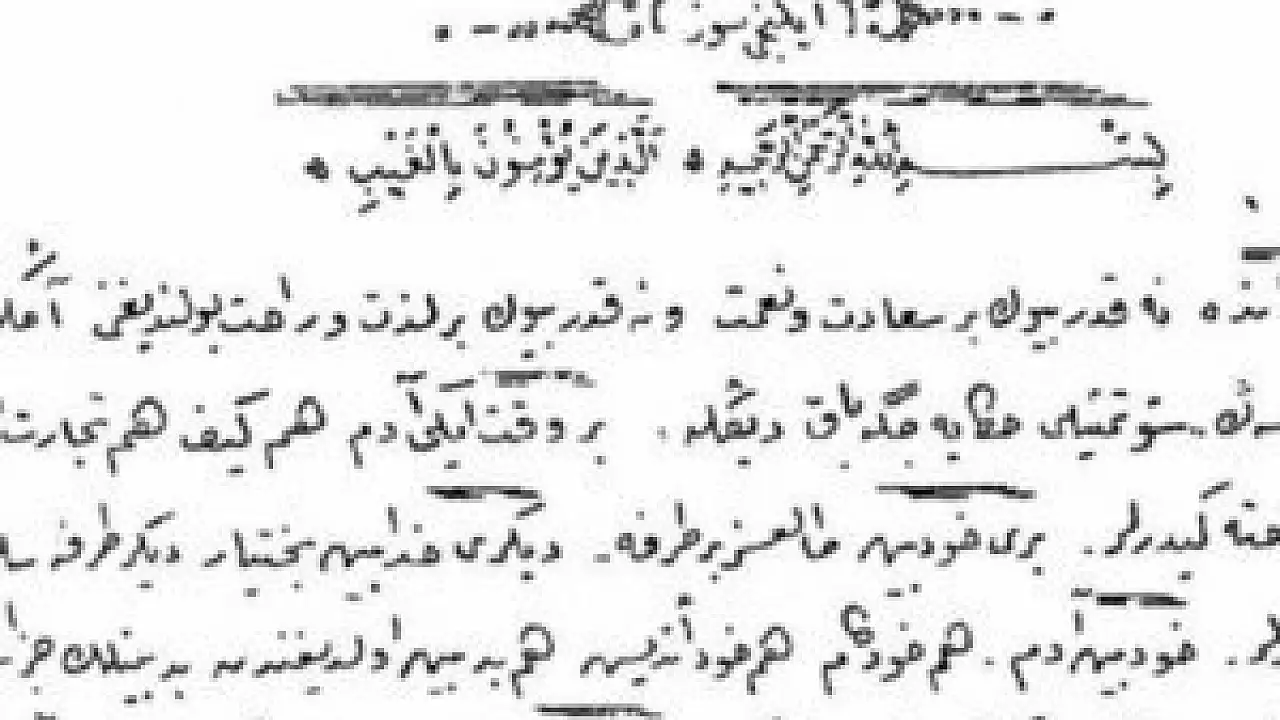 ﴿ ایکنجی سوز ﴾
بِسْمِ اللّٰهِ الرَّحْمٰنِ الرَّحِیمِ * اَلَّذِینَ یُؤْمِنُونَ بِالْغَیْبِ *
نه قدر بیوك بر سعادت و نعمت و نه قدر بیوك بر لذت و راحت بولندیغنی
شو تمثیلی حکایه جگه باق دیڭله. بر وقت ایکی آدم هم کیف هم تجارت
گیدرلر. بری خودبین طالعسز بر طرفه. دیگری خدابین بختیار دیگر طرفه
خودبین آدم. هم خودگام هم خوداندیش هم بدبین اولدیغندن بدبینلك